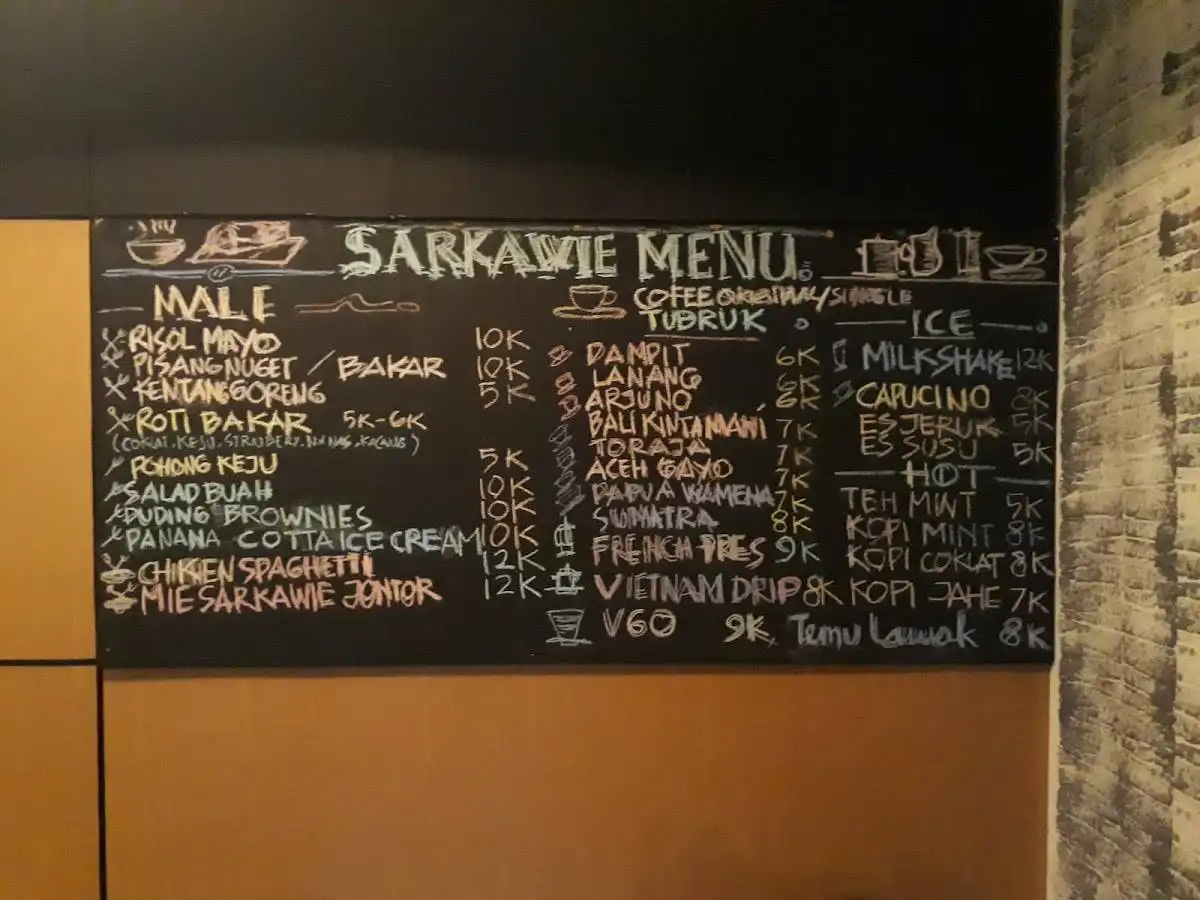 SARKAWIE MENU
MALE
RISOL MAYO 10K
PISANG NUGET / BAKAR 10K
KENTANG GORENG 5K
ROTI BAKAR 5K-6K
(COKLAT, KEJU, STRAWBERY, NANAS, KACANG)
POHONG KEJU 5K
SALAD BUAH 10K
PUDING BROWNIES 10K
PANANA COTTA ICE CREAM 10K
CHIKIEN SPAGHETTI 12K
MIE SARKAWIE JONTOR 12K
COFEE SINGLE
TUBRUK
DAMPIT 6K
LANANG 6K
ARJUNO 6K
BALI KINTAMANI 7K
TORAJA 7K
ACEH GAYO 7K
PAPUA WAMENA 7K
SUMATRA 8K
FRENCH PRES 9K
VIETNAM DRIP 8K
V60 9K
ICE
MILKSHAKE 12K
CAPUCINO 8K
ES JERUK 5K
ES SUSU 5K
HOT
TEH MINT 5K
KOPI MINT 8K
KOPI COKLAT 8K
KOPI JAHE 7K
Temu Lawak 8K